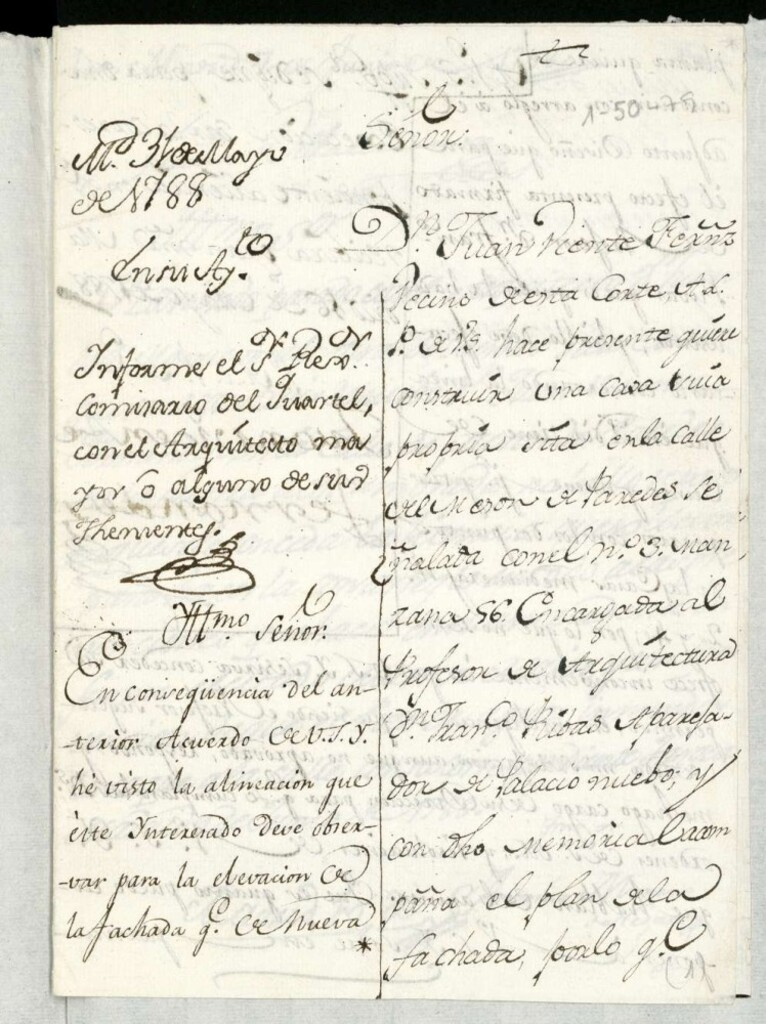 1-50-78
Señor.
Md. 31 de Mayo
de 1788
En su Ayto.
Informe el Sr. Rexor.
comisario del Quartel,
con el Arquitecto ma
yor ó alguno de sus
Thenientes.
Illmo. Señor.
En conseqüencia del an-
-terior Acuerdo de V.S.Y.
hé visto la alineacion que
éste Ynteresado deve obser-
-var para la elevacion de
la fachada q.e de Nueva *
Dn. Juan Vicente Fernz
Vecino de esta Corte A L.
P. de V.S. hace presente quiere
construir una casa suia
propria sita en la calle
del Meson de Paredes se
ñalada con el no. 3. man
zana 56. Encargada al
Profesor de Arquitectura
Dn. Franco. Ribas Apareja-
dor de Palacio nuebo, y
con dho memorial acom
paña el plan de la
fachada, por lo q.e